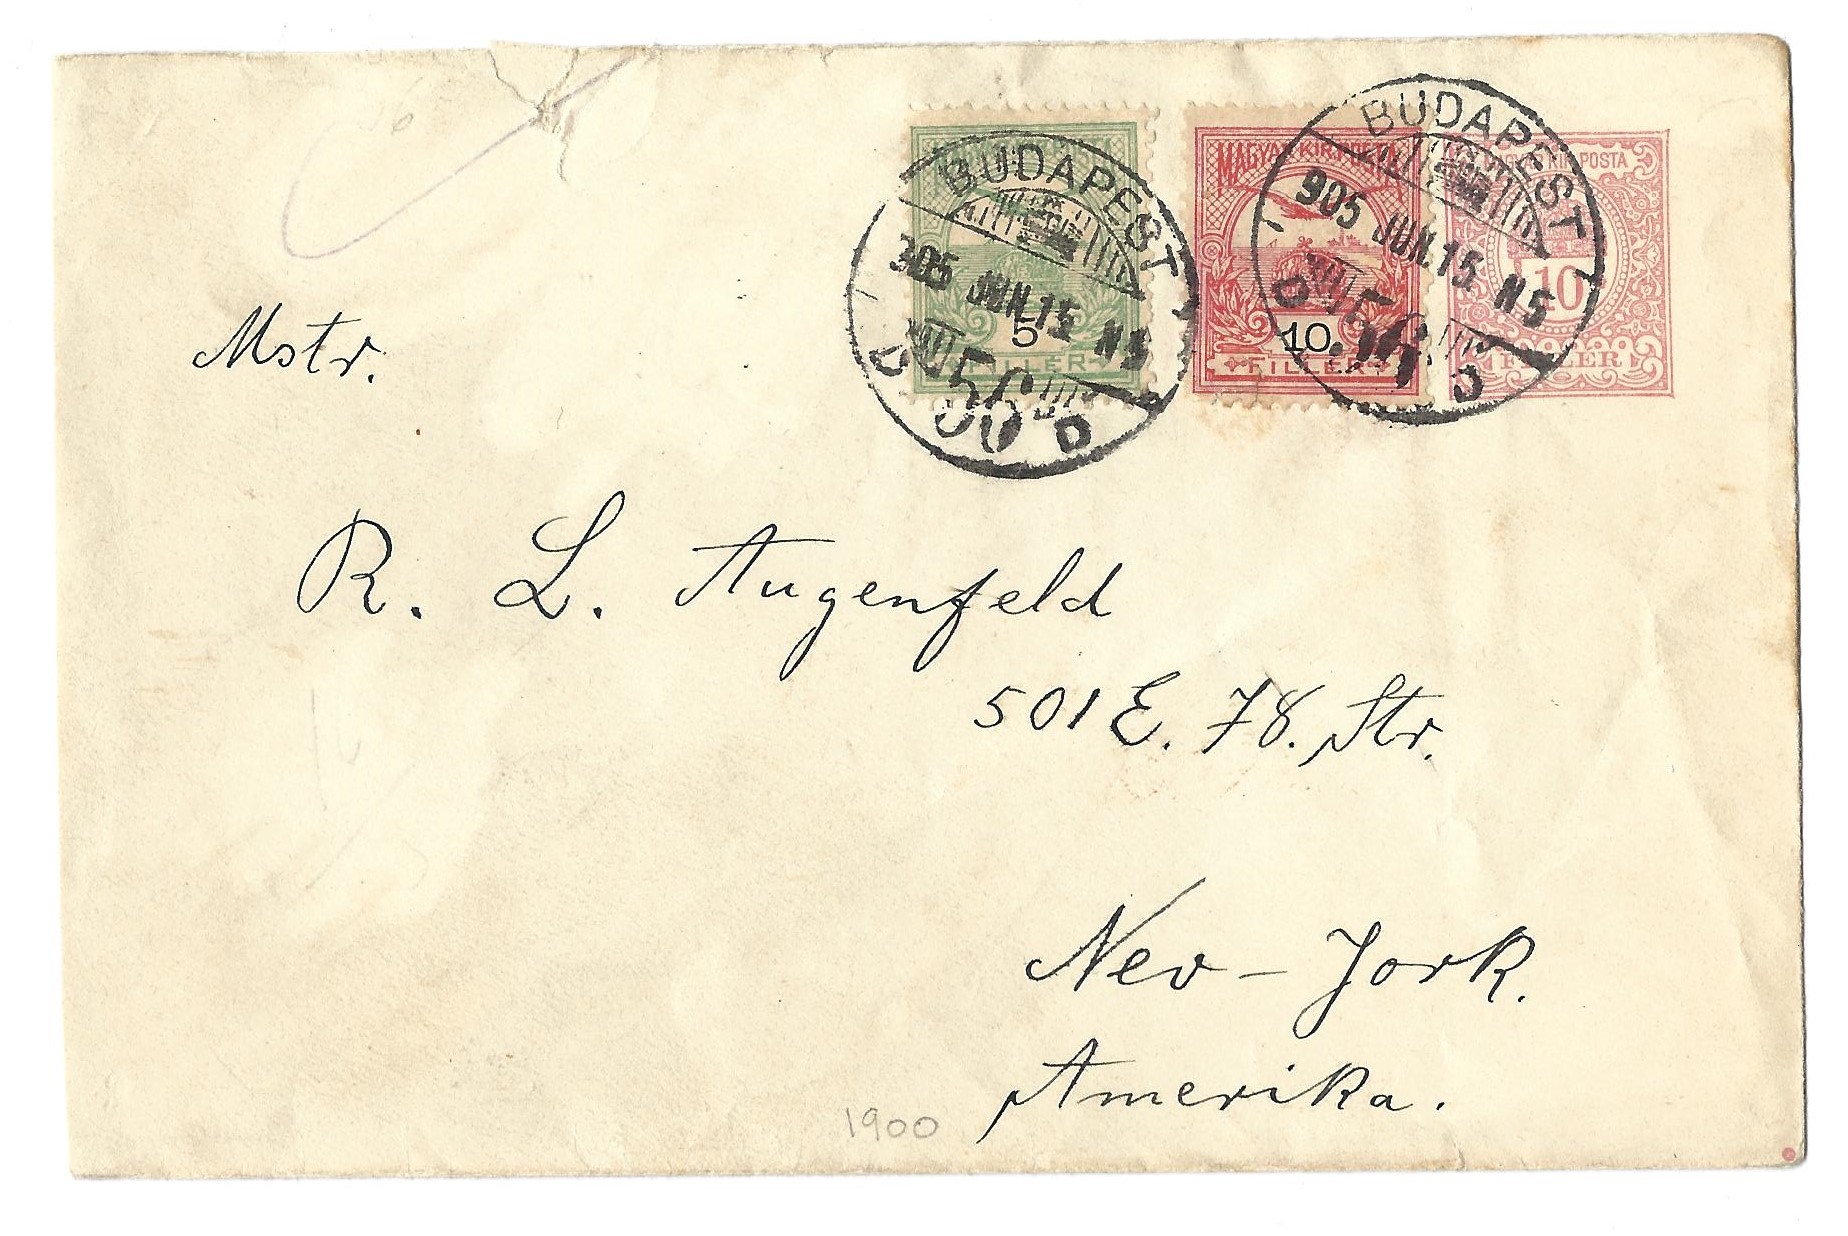 BUDAPEST
905 JUN.15 N5
56
D D
5
FILLÉR
MAGYAR KIR. POSTA
10
FILLÉR
BUDAPEST
905 JUN.15 N5
56
D D
MAGYAR KIR. POSTA
10
FILLÉR
Mstr.
R. L. Augenfeld
501 E. 78. Str.
Nev-York.
Amerika.
1900